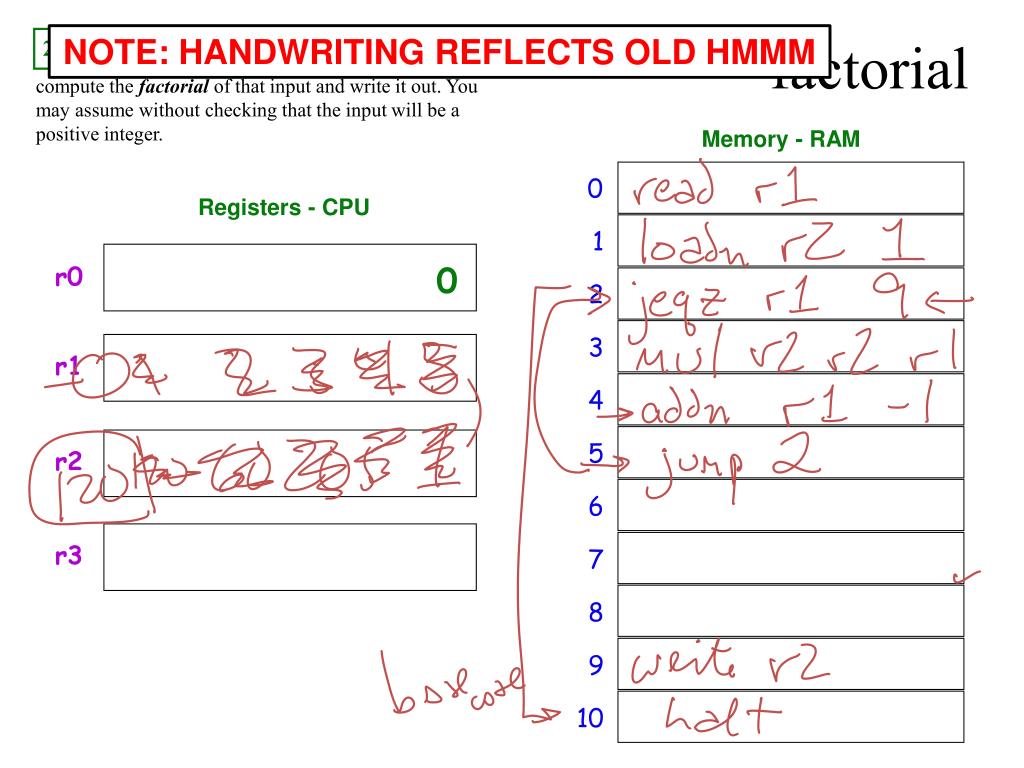 NOTE: HANDWRITING REFLECTS OLD HMMM
factorial
compute the factorial of that input and write it out. You
may assume without checking that the input will be a
positive integer.
Registers - CPU
r0 0
r1 0 1 2 3 4 5
r2 120 120 60 20 5 1
r3
base case
Memory - RAM
0 read r1
1 loadn r2 1
2 jeqz r1 9
3 mul r2 r2 r1
4 addn r1 -1
5 jump 2
6
7
8
9 write r2
10 halt